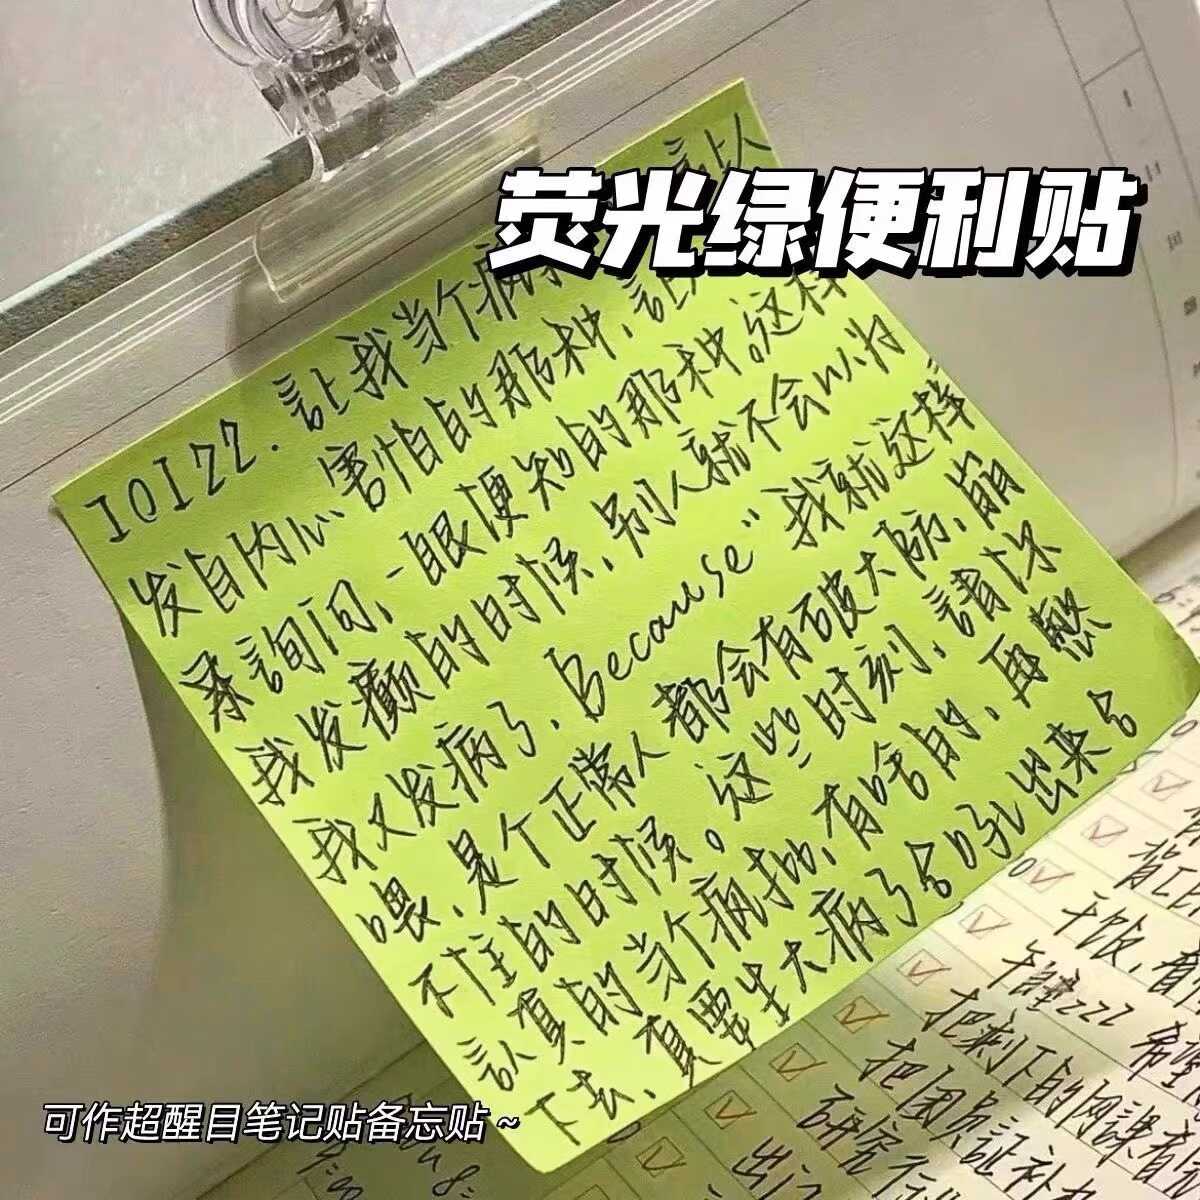 荧光绿便利贴
上人
10122.让我当个疯
发自内心害怕的那种,让人
来詢问,一眼便知的那种。这样
我发癫的时候,别人就不会以为
我又发病了,Because“我就这样
喂,是个正常人都会有破大防,崩
不住的时候。这些时刻,請你
認真的当个疯批,有啥的,再憋
下去,真要生大病了
出来
午睡zzz 希望
干饭,看
把剩下的网课看
把团员証补
研究
出门
可作超醒目笔记贴备忘贴~